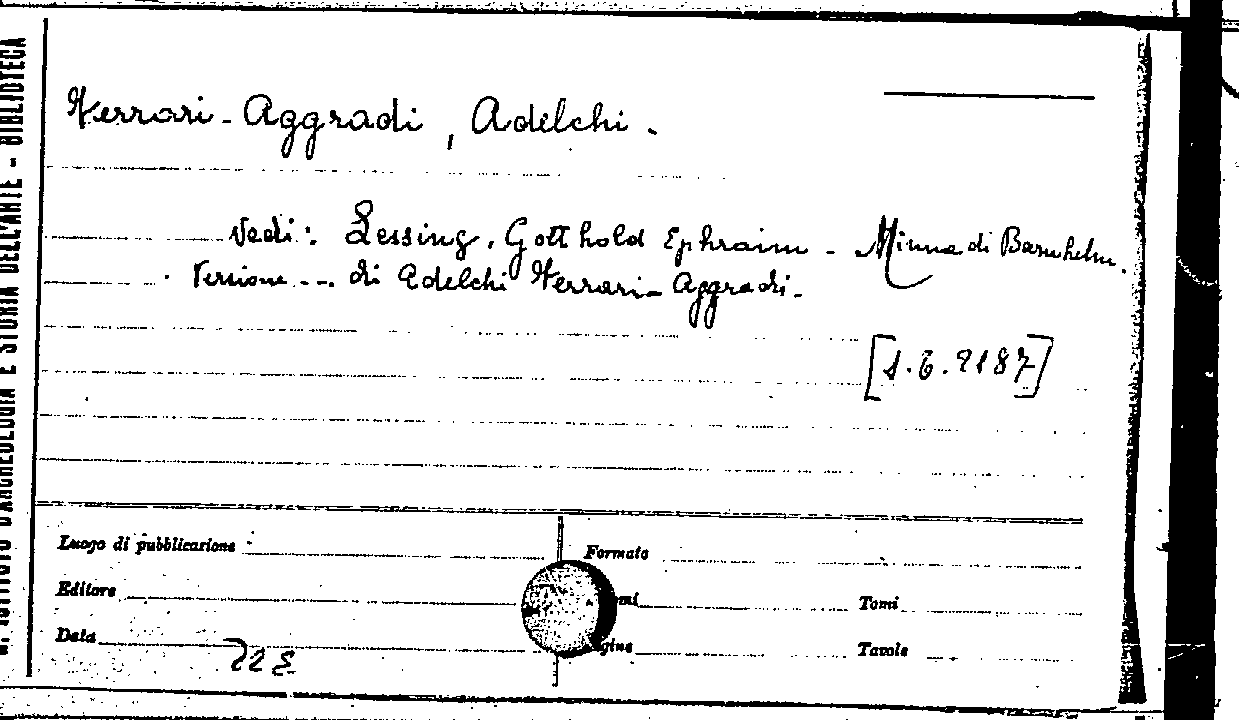 Ferrari-Aggradi, Adelchi.
Vedi: Lessing, Gotthold Ephraim - Minna di Barnhelm.
Versione ... di Adelchi Ferrari-Aggradi-
[S.G.2187]
Luogo di pubblicazione
Formato
Editore
Tomi
Data
Tavole
R. ISTITUTO D'ARCHEOLOGIA E STORIA DELL'ARTE - BIBLIOTECA